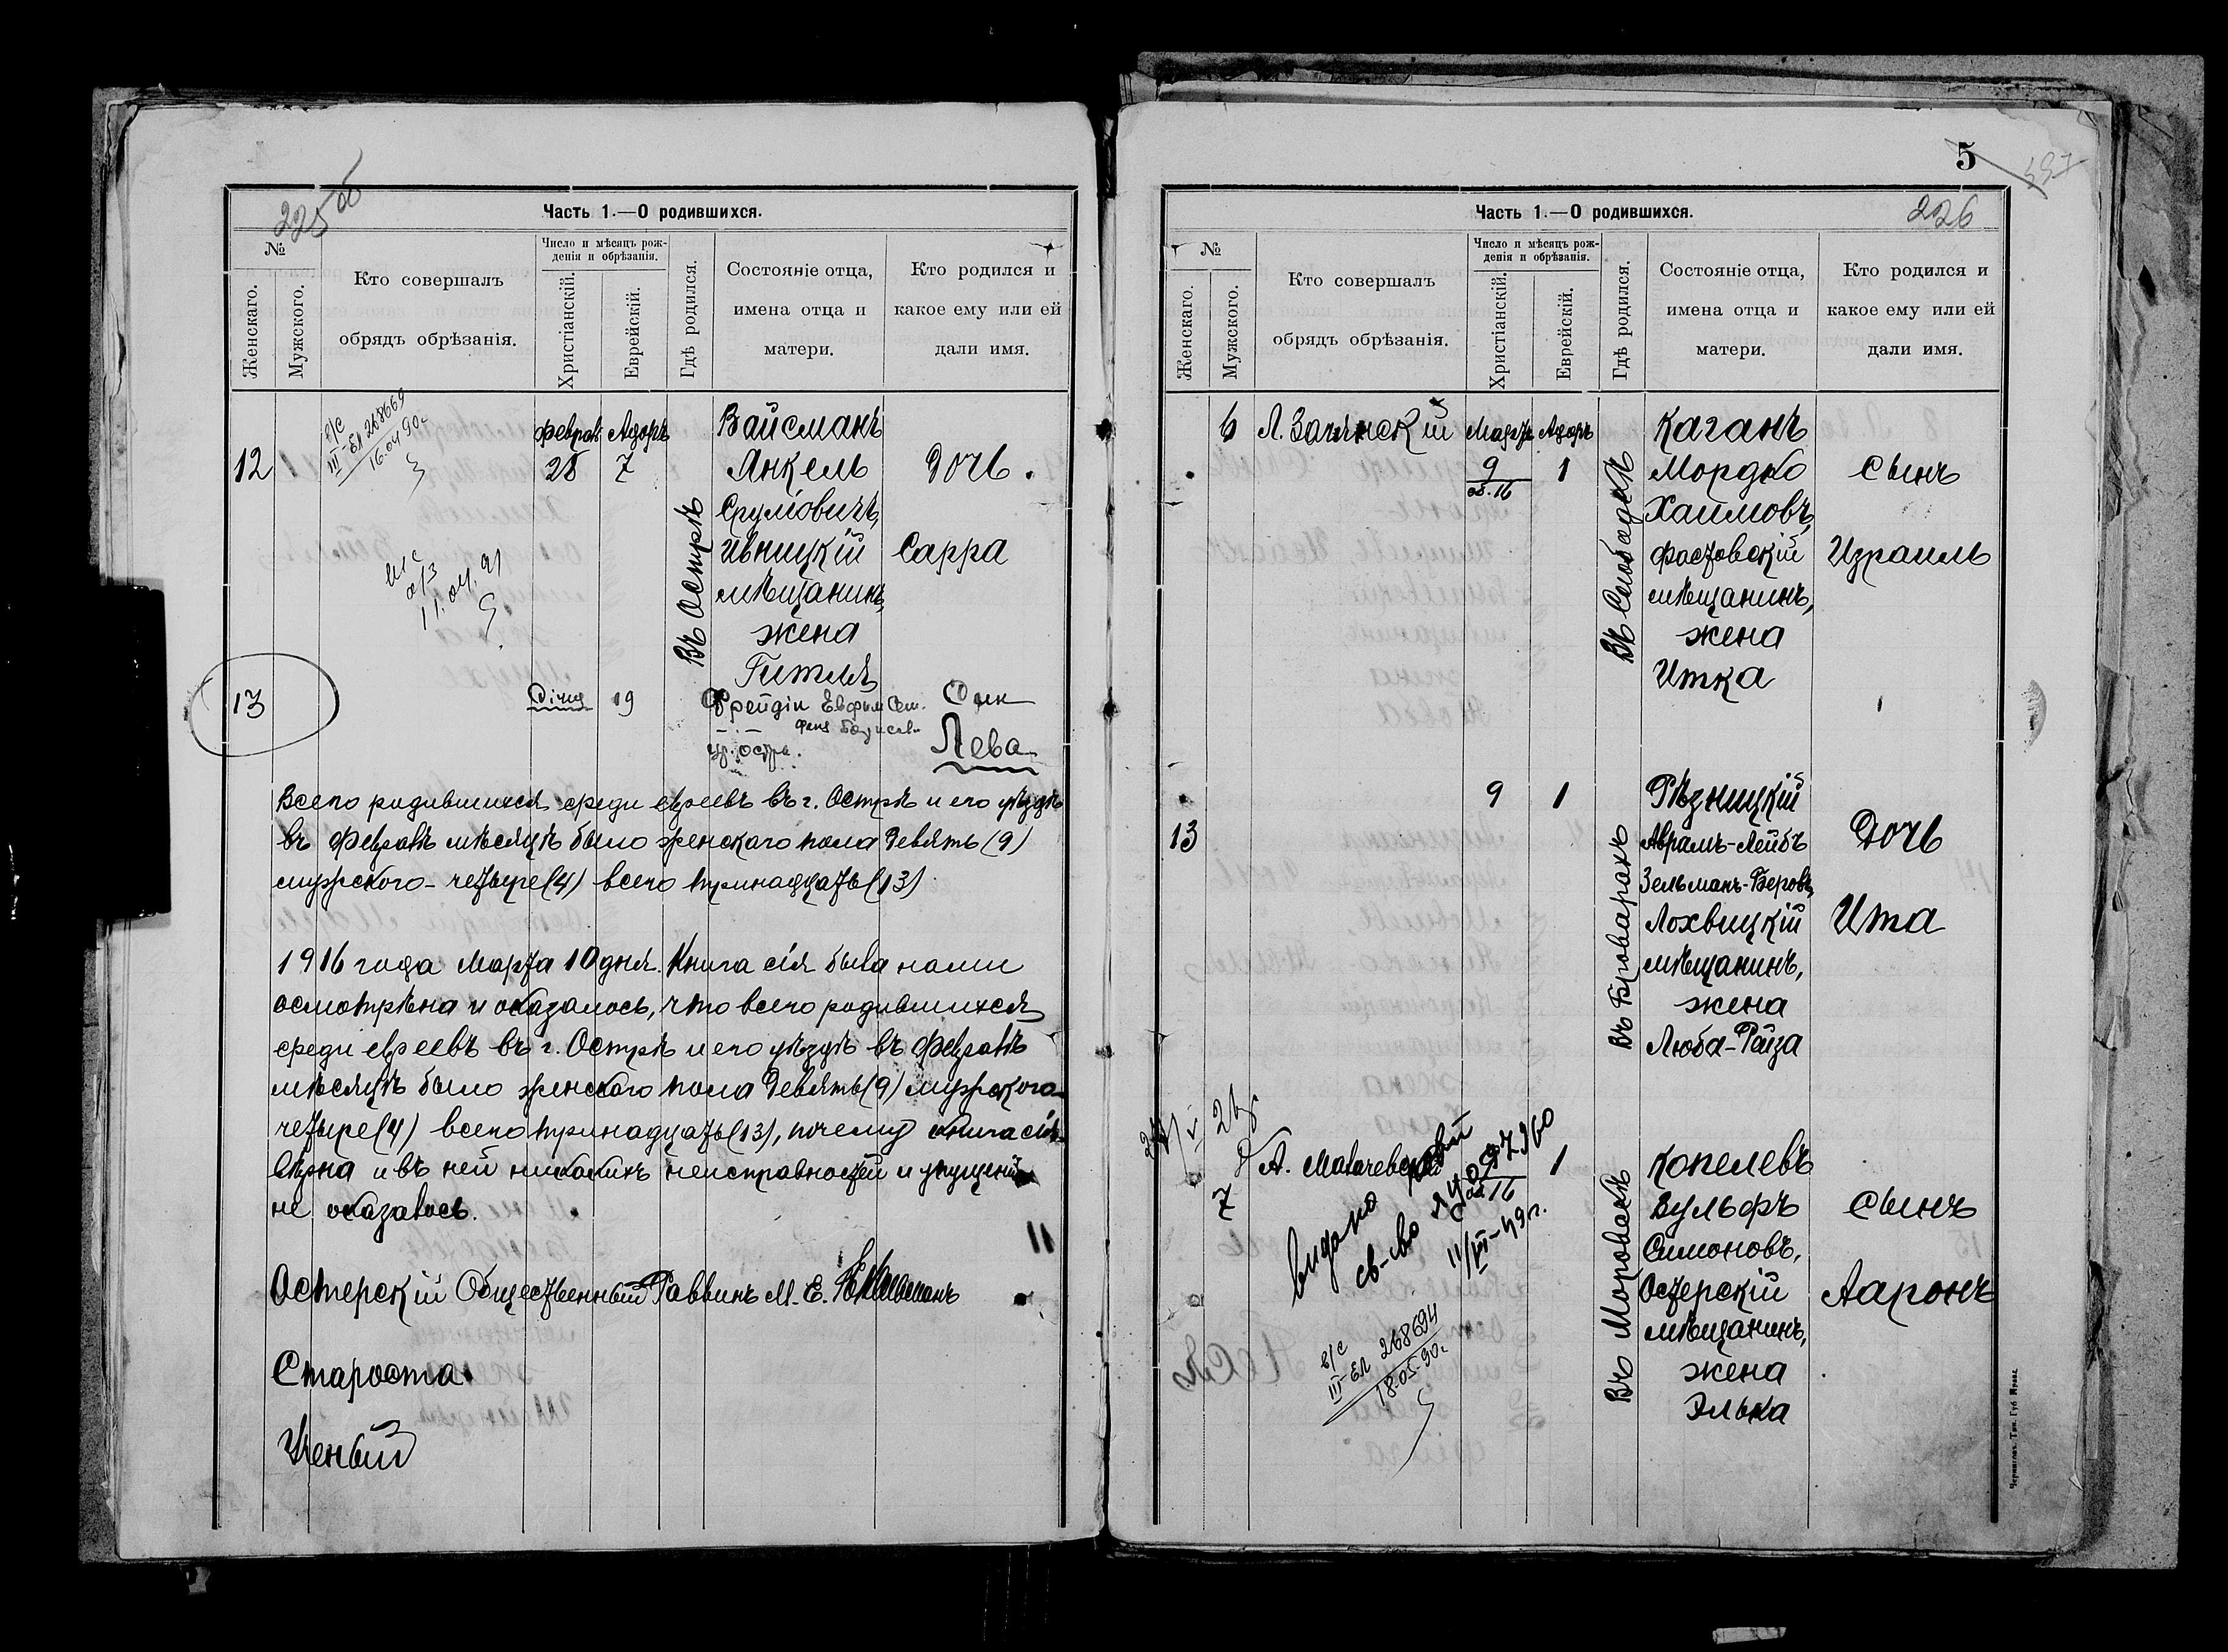 225 об
Часть 1.—О родившихся.
№
Женскаго.
Мужского.
Кто совершалъ
обрядъ обрѣзанія.
Число и мѣсяцъ рож-
денія и обрѣзанія.
Христіанскій.
Еврейскій.
Гдѣ родился.
Состояніе отца,
имена отца и
матери.
Кто родился и
какое ему или ей
дали имя.
в/с
III-ЕЛ 268669
16.04.90г
Адоръ
12
28
7
Въ Острѣ
Вайсманъ
Янкель
Срулiовичъ,
мѣщанинъ,
жена
Гитля
Дочь.
Сарра
11.04.91
13
Січня
19
Фрейдін Евфим
Син
Лева
Всего родившихся среди евреевъ въ г. Острѣ и его уѣздѣ
въ Февралѣ мѣсяцѣ было женского пола девять (9)
мужского - четыре (4) всего тринадцать (13)
1916 года Марта 10 дня. Книга сія была нами
осмотрѣна и оказалось, что всего родившихся
среди евреевъ въ г. Острѣ и его уѣздѣ въ Февралѣ
мѣсяцѣ было женского пола девять (9) мужского -
четыре (4) всего тринадцать (13), почему книга сія
вѣрна и въ ней никакихъ неисправностей и упущеній
не оказалось.
Остерскій Общественный Раввинъ М. Е.
Староста
Ученый
5
226
Часть 1.—О родившихся.
№
Женскаго.
Мужского.
Кто совершалъ
обрядъ обрѣзанія.
Число и мѣсяцъ рож-
денія и обрѣзанія.
Христіанскій.
Еврейскій.
Гдѣ родился.
Состояніе отца,
имена отца и
матери.
Кто родился и
какое ему или ей
дали имя.
6
Марта
Адоръ
9
об. 16
1
Въ Слободкѣ
Каганъ
Мордко
Хаимовъ,
Фастовскій
мѣщанинъ,
жена
Итка
Сынъ
Израиль
13
9
1
Въ Броварахъ
Рѣзницкій
Аврамъ-Лейбъ
Зельманъ-Беровъ,
Лохвицкій
мѣщанинъ,
жена
Люба-Райза
Дочь
Ита
7
А.
об. 16
1
Въ Моровскѣ
Копелевъ
Вульфъ
Симоновъ,
Остерскій
мѣщанинъ,
жена
Элька
Сынъ
Ааронъ
видано
св-во
11/III-49г.
в/с
III-ЕЛ 268694
18-05-90г
Черниговъ. Тип. Губ. Правл.